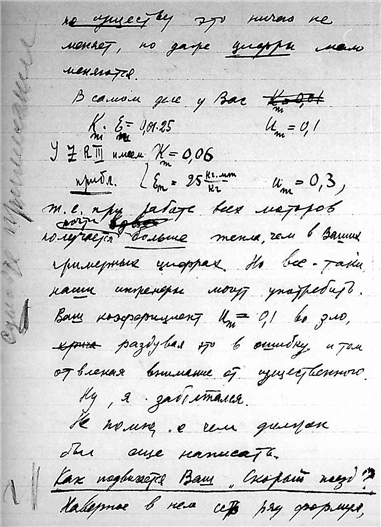 по существу это ничего не
меняет, но даже цифры мало
меняются.
В самом деле у Вас K=0,01
K E = 0,01·25 U_m = 0,1
У Z R III имеем K = 0,06
прибл. { E_m = 25 кг.мт/кг u_m = 0,3,
т.е. при работе всех моторов
почти вдвое
получается больше жепла, чем в Ваших
примерных цифрах. Но все-таки
наши инженеры могут употребить
Ваш коэффициент U_m = 0,1 во зло,
раздувая это в ошибку и тем
отвлекая внимание от существенного.
Ну, я заболтался.
Не помню о чем должен
был еще написать.
Как подвигается Ваш „Скорый поезд"?
Наверное в нем есть ряд формул,